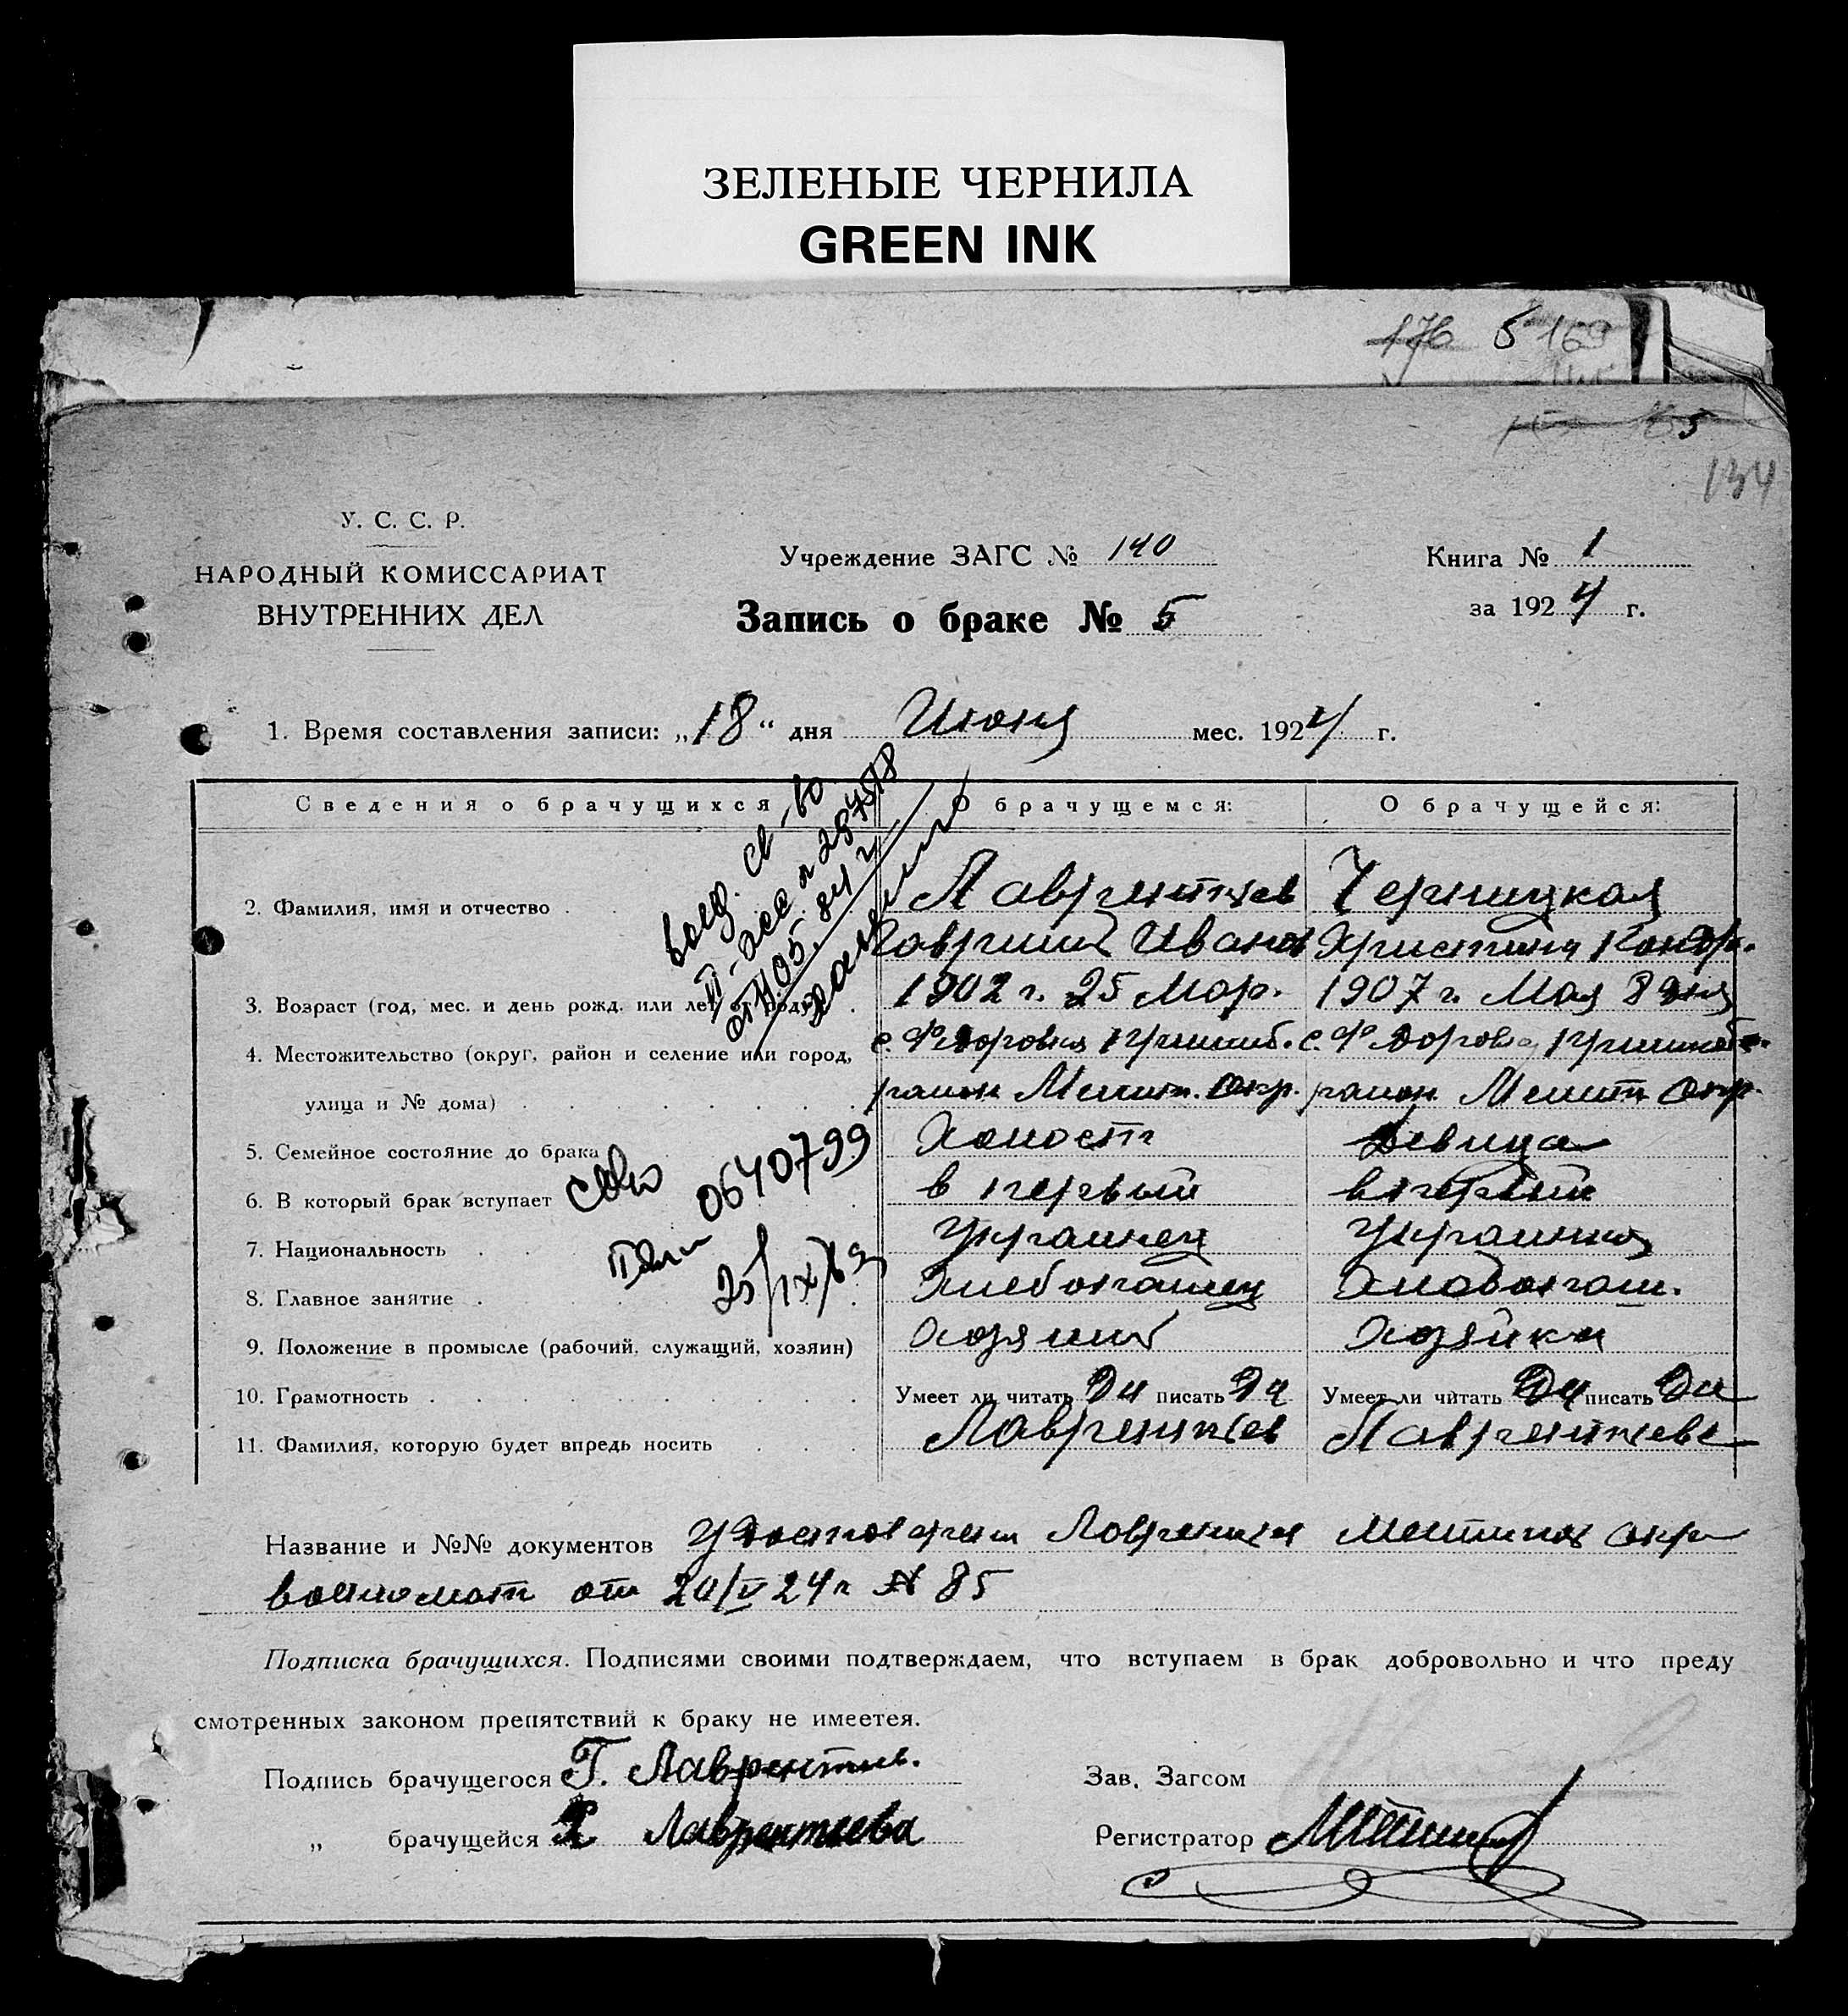 ЗЕЛЕНЫЕ ЧЕРНИЛА
GREEN INK
176 5 169
134
У. С. С. Р.
НАРОДНЫЙ КОМИССАРИАТ
ВНУТРЕННИХ ДЕЛ
Учреждение ЗАГС № 140
Книга № 1
за 1924 г.
Запись о браке № 5
1. Время составления записи: „18“ дня Июня мес. 1924 г.
Сведения о брачущихся
О брачущемся:
О брачущейся:
2. Фамилия, имя и отчество
Лаврентьев
Черницкая
Гавриил Иванов
Христина Кондр.
3. Возраст (год, мес. и день рожд. или лет
1902 г. 25 Мар.
1907 г. Мая 8 дня
4. Местожительство (округ, район и селение или город,
с. Федоровка
с. Федоровка
улица и № дома)
район Мелит. Окр.
район Мелит Окр.
5. Семейное состояние до брака
Холост
Девица
6. В который брак вступает
в первый
в первый
7. Национальность
Украинец
Украинка
8. Главное занятие
Хлебопашец
Хлебопаш.
9. Положение в промысле (рабочий, служащий, хозяин)
Хозяин
Хозяйка
10. Грамотность
Умеет ли читать Да писать Да
Умеет ли читать Да писать Да
11. Фамилия, которую будет впредь носить
Лаврентьев
Лаврентьева
выд. св-во
0640799
25/IX/69
Название и №№ документов
от 20/V 24 г № 85
Подписка брачущихся. Подписями своими подтверждаем, что вступаем в брак добровольно и что преду
смотренных законом препятствий к браку не имеетея.
Подпись брачущегося Г. Лаврентьев.
Зав. Загсом
„ брачущейся Х Лаврентьева
Регистратор